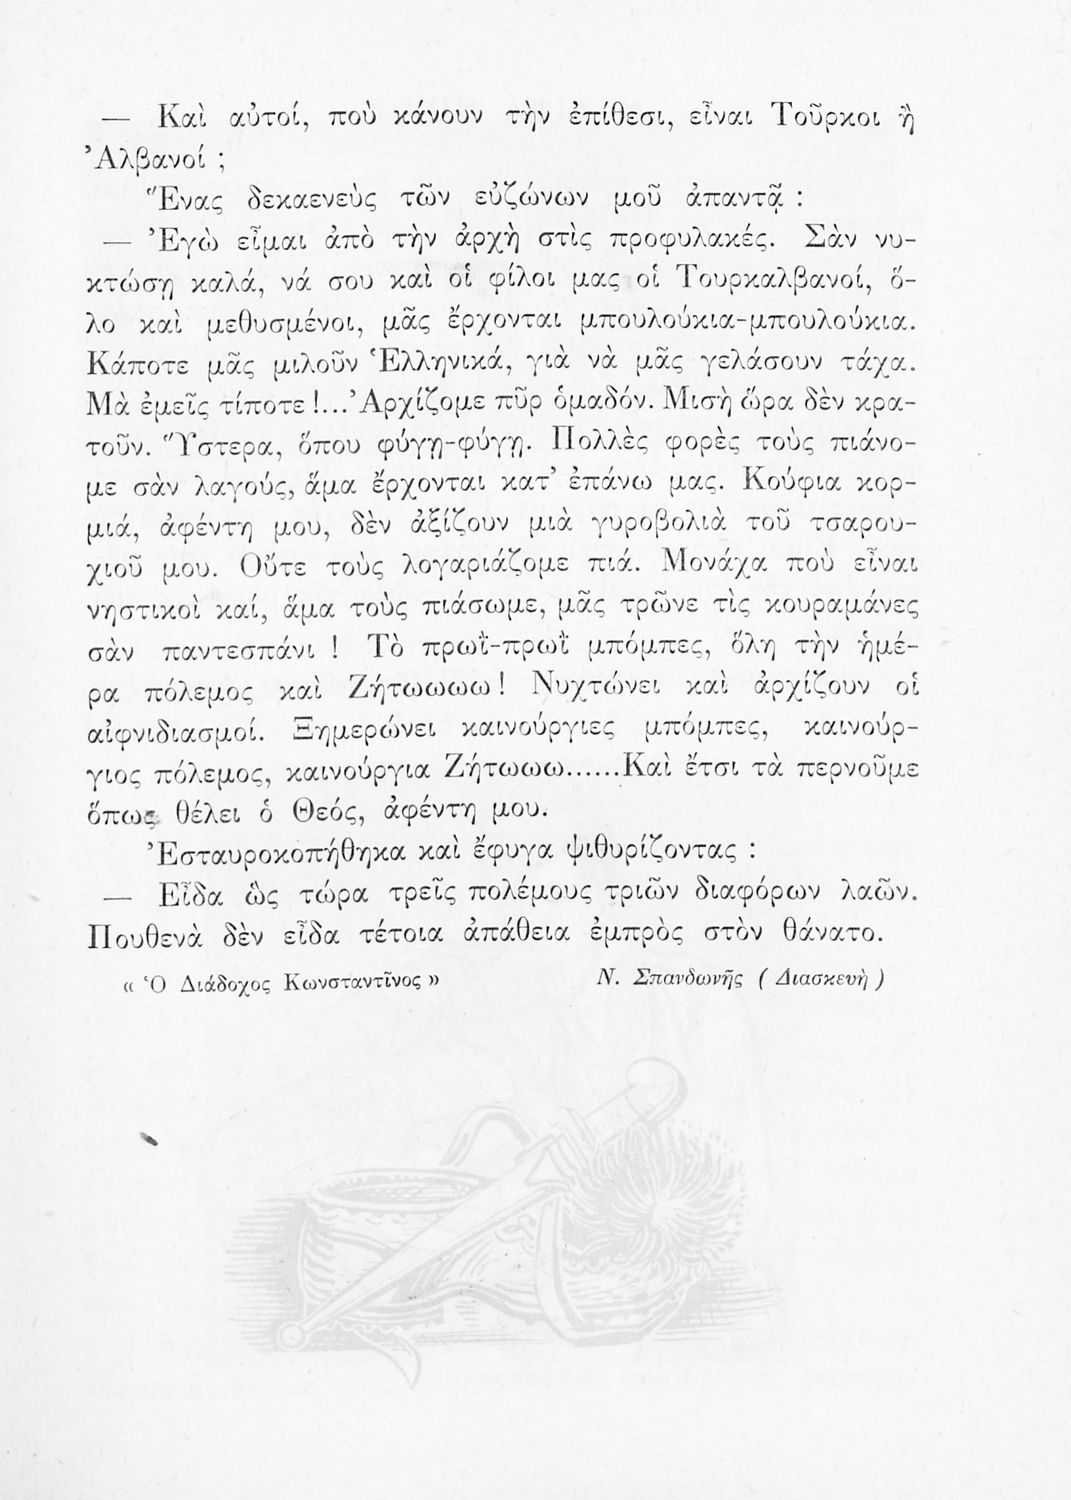 — Καὶ αὐτοί, ποὺ κάνουν τὴν ἐπίθεσι, εἶναι Τοῦρκοι ἢ
Ἀλβανοί ;
Ἕνας δεκαενεὺς τῶν εὐζώνων μοῦ ἀπαντᾷ :
— Ἐγὼ εἶμαι ἀπὸ τὴν ἀρχὴ στὶς προφυλακές. Σὰν νυ-
κτώσῃ καλά, νά σου καὶ οἱ φίλοι μας οἱ Τουρκαλβανοί, ὅ-
λο καὶ μεθυσμένοι, μᾶς ἔρχονται μπουλούκια-μπουλούκια.
Κάποτε μᾶς μιλοῦν Ἑλληνικά, γιὰ νὰ μᾶς γελάσουν τάχα.
Μὰ ἐμεῖς τίποτε !...Ἀρχίζομε πῦρ ὁμαδόν. Μισὴ ὥρα δὲν κρα-
τοῦν. Ὕστερα, ὅπου φύγῃ-φύγῃ. Πολλὲς φορὲς τοὺς πιάνο-
με σὰν λαγούς, ἅμα ἔρχονται κατ’ ἐπάνω μας. Κούφια κορ-
μιά, ἀφέντη μου, δὲν ἀξίζουν μιὰ γυροβολιὰ τοῦ τσαρου-
χιοῦ μου. Οὔτε τοὺς λογαριάζομε πιά. Μονάχα ποὺ εἶναι
νηστικοὶ καί, ἅμα τοὺς πιάσωμε, μᾶς τρῶνε τὶς κουραμάνες
σὰν παντεσπάνι ! Τὸ πρωῒ-πρωῒ μπόμπες, ὅλη τὴν ἡμέ-
ρα πόλεμος καὶ Ζήτωωωω! Νυχτώνει καὶ ἀρχίζουν οἱ
αἰφνιδιασμοί. Ξημερώνει καινούργιες μπόμπες, καινούρ-
γιος πόλεμος, καινούργια Ζήτωωω......Καὶ ἔτσι τὰ περνοῦμε
ὅπως θέλει ὁ Θεός, ἀφέντη μου.
Ἐσταυροκοπήθηκα καὶ ἔφυγα ψιθυρίζοντας :
— Εἶδα ὣς τώρα τρεῖς πολέμους τριῶν διαφόρων λαῶν.
Πουθενὰ δὲν εἶδα τέτοια ἀπάθεια ἐμπρὸς στὸν θάνατο.
« Ὁ Διάδοχος Κωνσταντῖνος » Ν. Σπανδωνῆς ( Διασκευὴ )